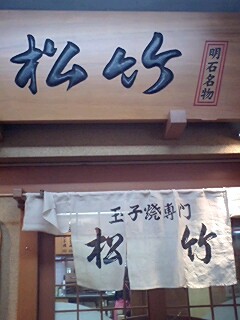 松竹
明石名物
玉子焼専門
松竹